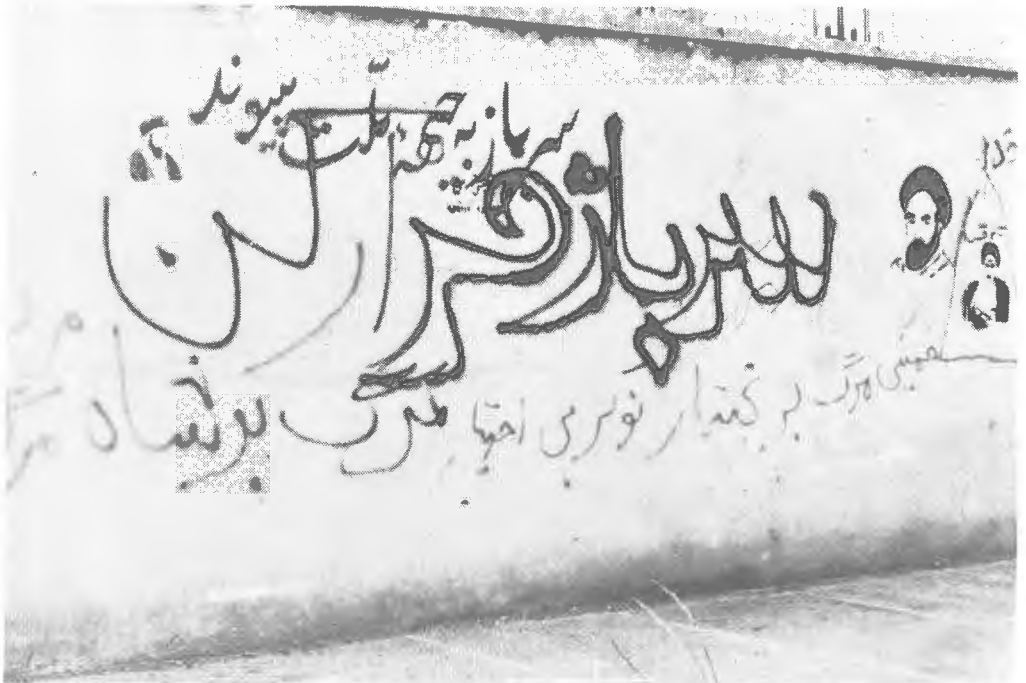 سرباز به جبهه ملّت بپیوند
سرباز فرار کن
مرگ بر بختیار نوکر بی اختیار
مرگ بر شاه